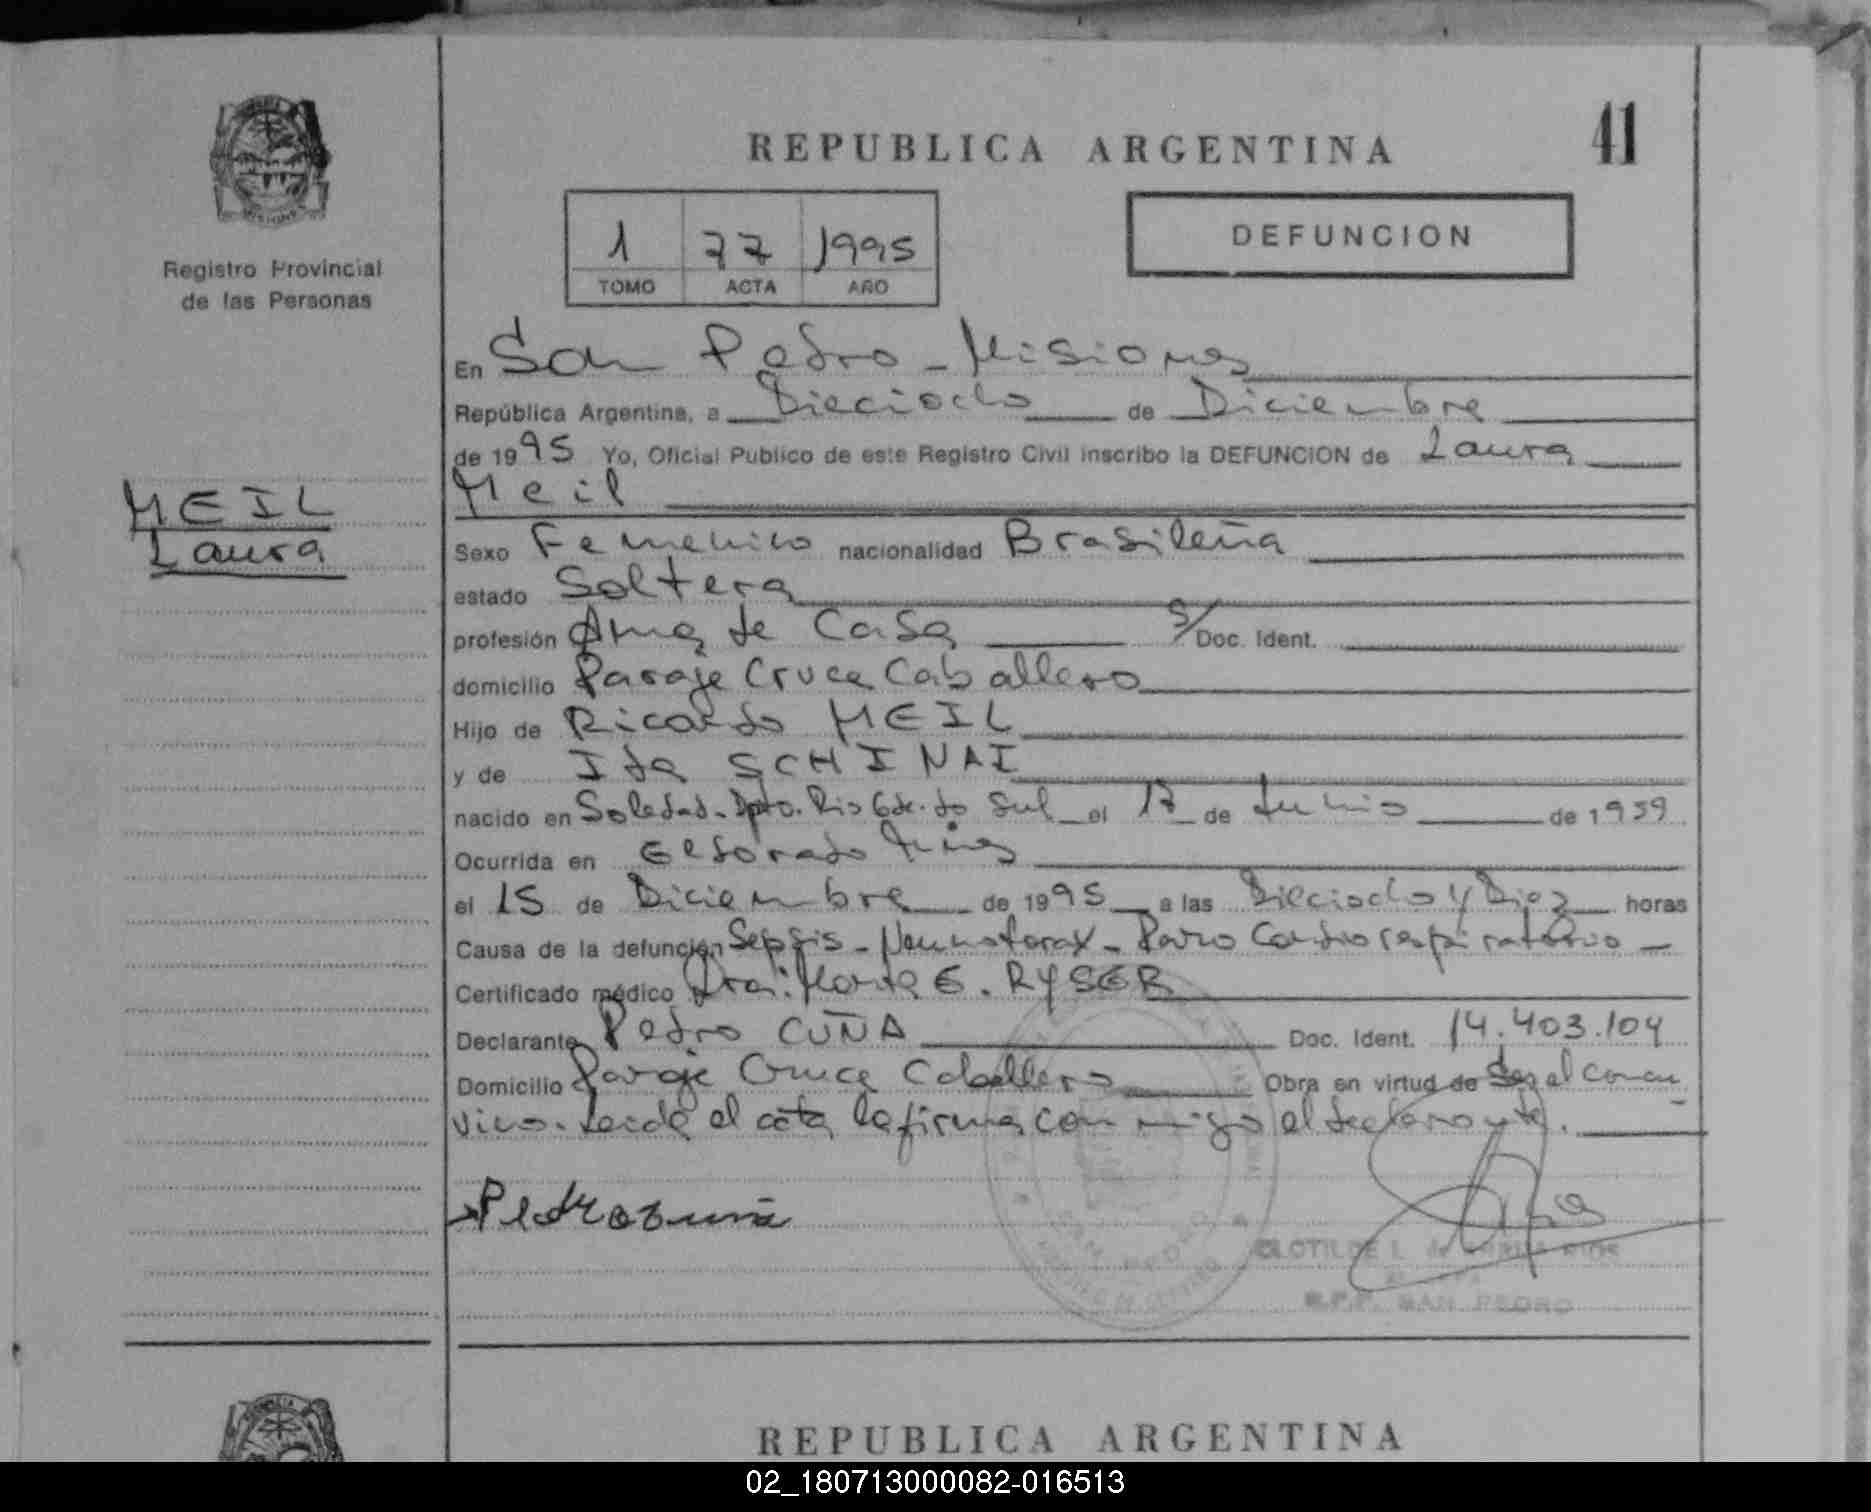 41
REPUBLICA ARGENTINA
DEFUNCION
1 77 1995
TOMO ACTA AÑO
Registro Provincial
de las Personas
MEIL
Laura
En San Pedro - Misiones
República Argentina, a Dieciocho de Diciembre
de 1995 Yo, Oficial Publico de este Registro Civil inscribo la DEFUNCION de Laura
Meil
Sexo Femenino nacionalidad Brasileña
estado Soltera
profesión Ama de Casa S/ Doc. Ident.
domicilio Paraje Cruce Caballero
Hijo de Ricardo MEIL
y de Ida SCHINAI
nacido en Soledad - Dpto. Rio Gde. do Sul el 17 de Junio de 1959
Ocurrida en Eldorado Mnes
el 15 de Diciembre de 1995 a las Dieciocho y Diez horas
Causa de la defunción Sepsis - Neumotorax - Paro Cardiorespiratorio -
Certificado médico Dra. Marta E. RYSER
Declarante Pedro CUÑA Doc. Ident. 14.403.104
Domicilio Paraje Cruce Caballero Obra en virtud de Ser el concu
vino. Leida el acta la firma con migo el declarante.
SAN PEDRO
CLOTILDE L. de RIOS
R.P.P. SAN PEDRO
REPUBLICA ARGENTINA
02_180713000082-016513